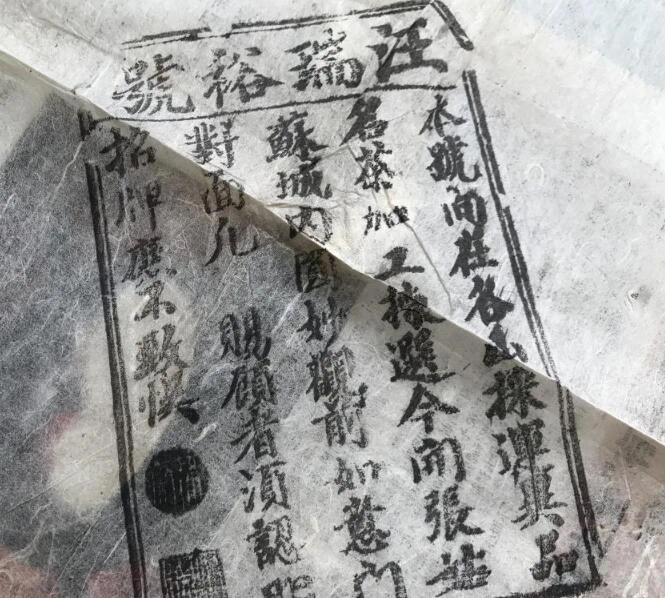 汪瑞裕號
本號向往各山採渾真品
名茶加工揀選今開張
蘇城内圓妙觀前如意門
對面凡 賜顧者須認明
招牌庶不致悞